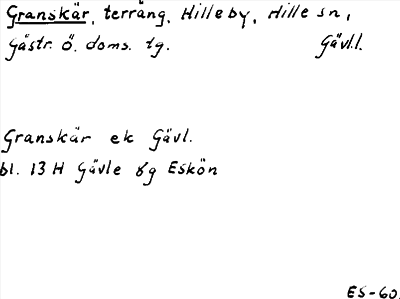 Granskär, terräng, Hilleby, Hille sn,
Gästr. ö. doms. tg. Gävl.l.
Granskär ek Gävl.
bl. 13 H Gävle 8g Eskön
ES-60